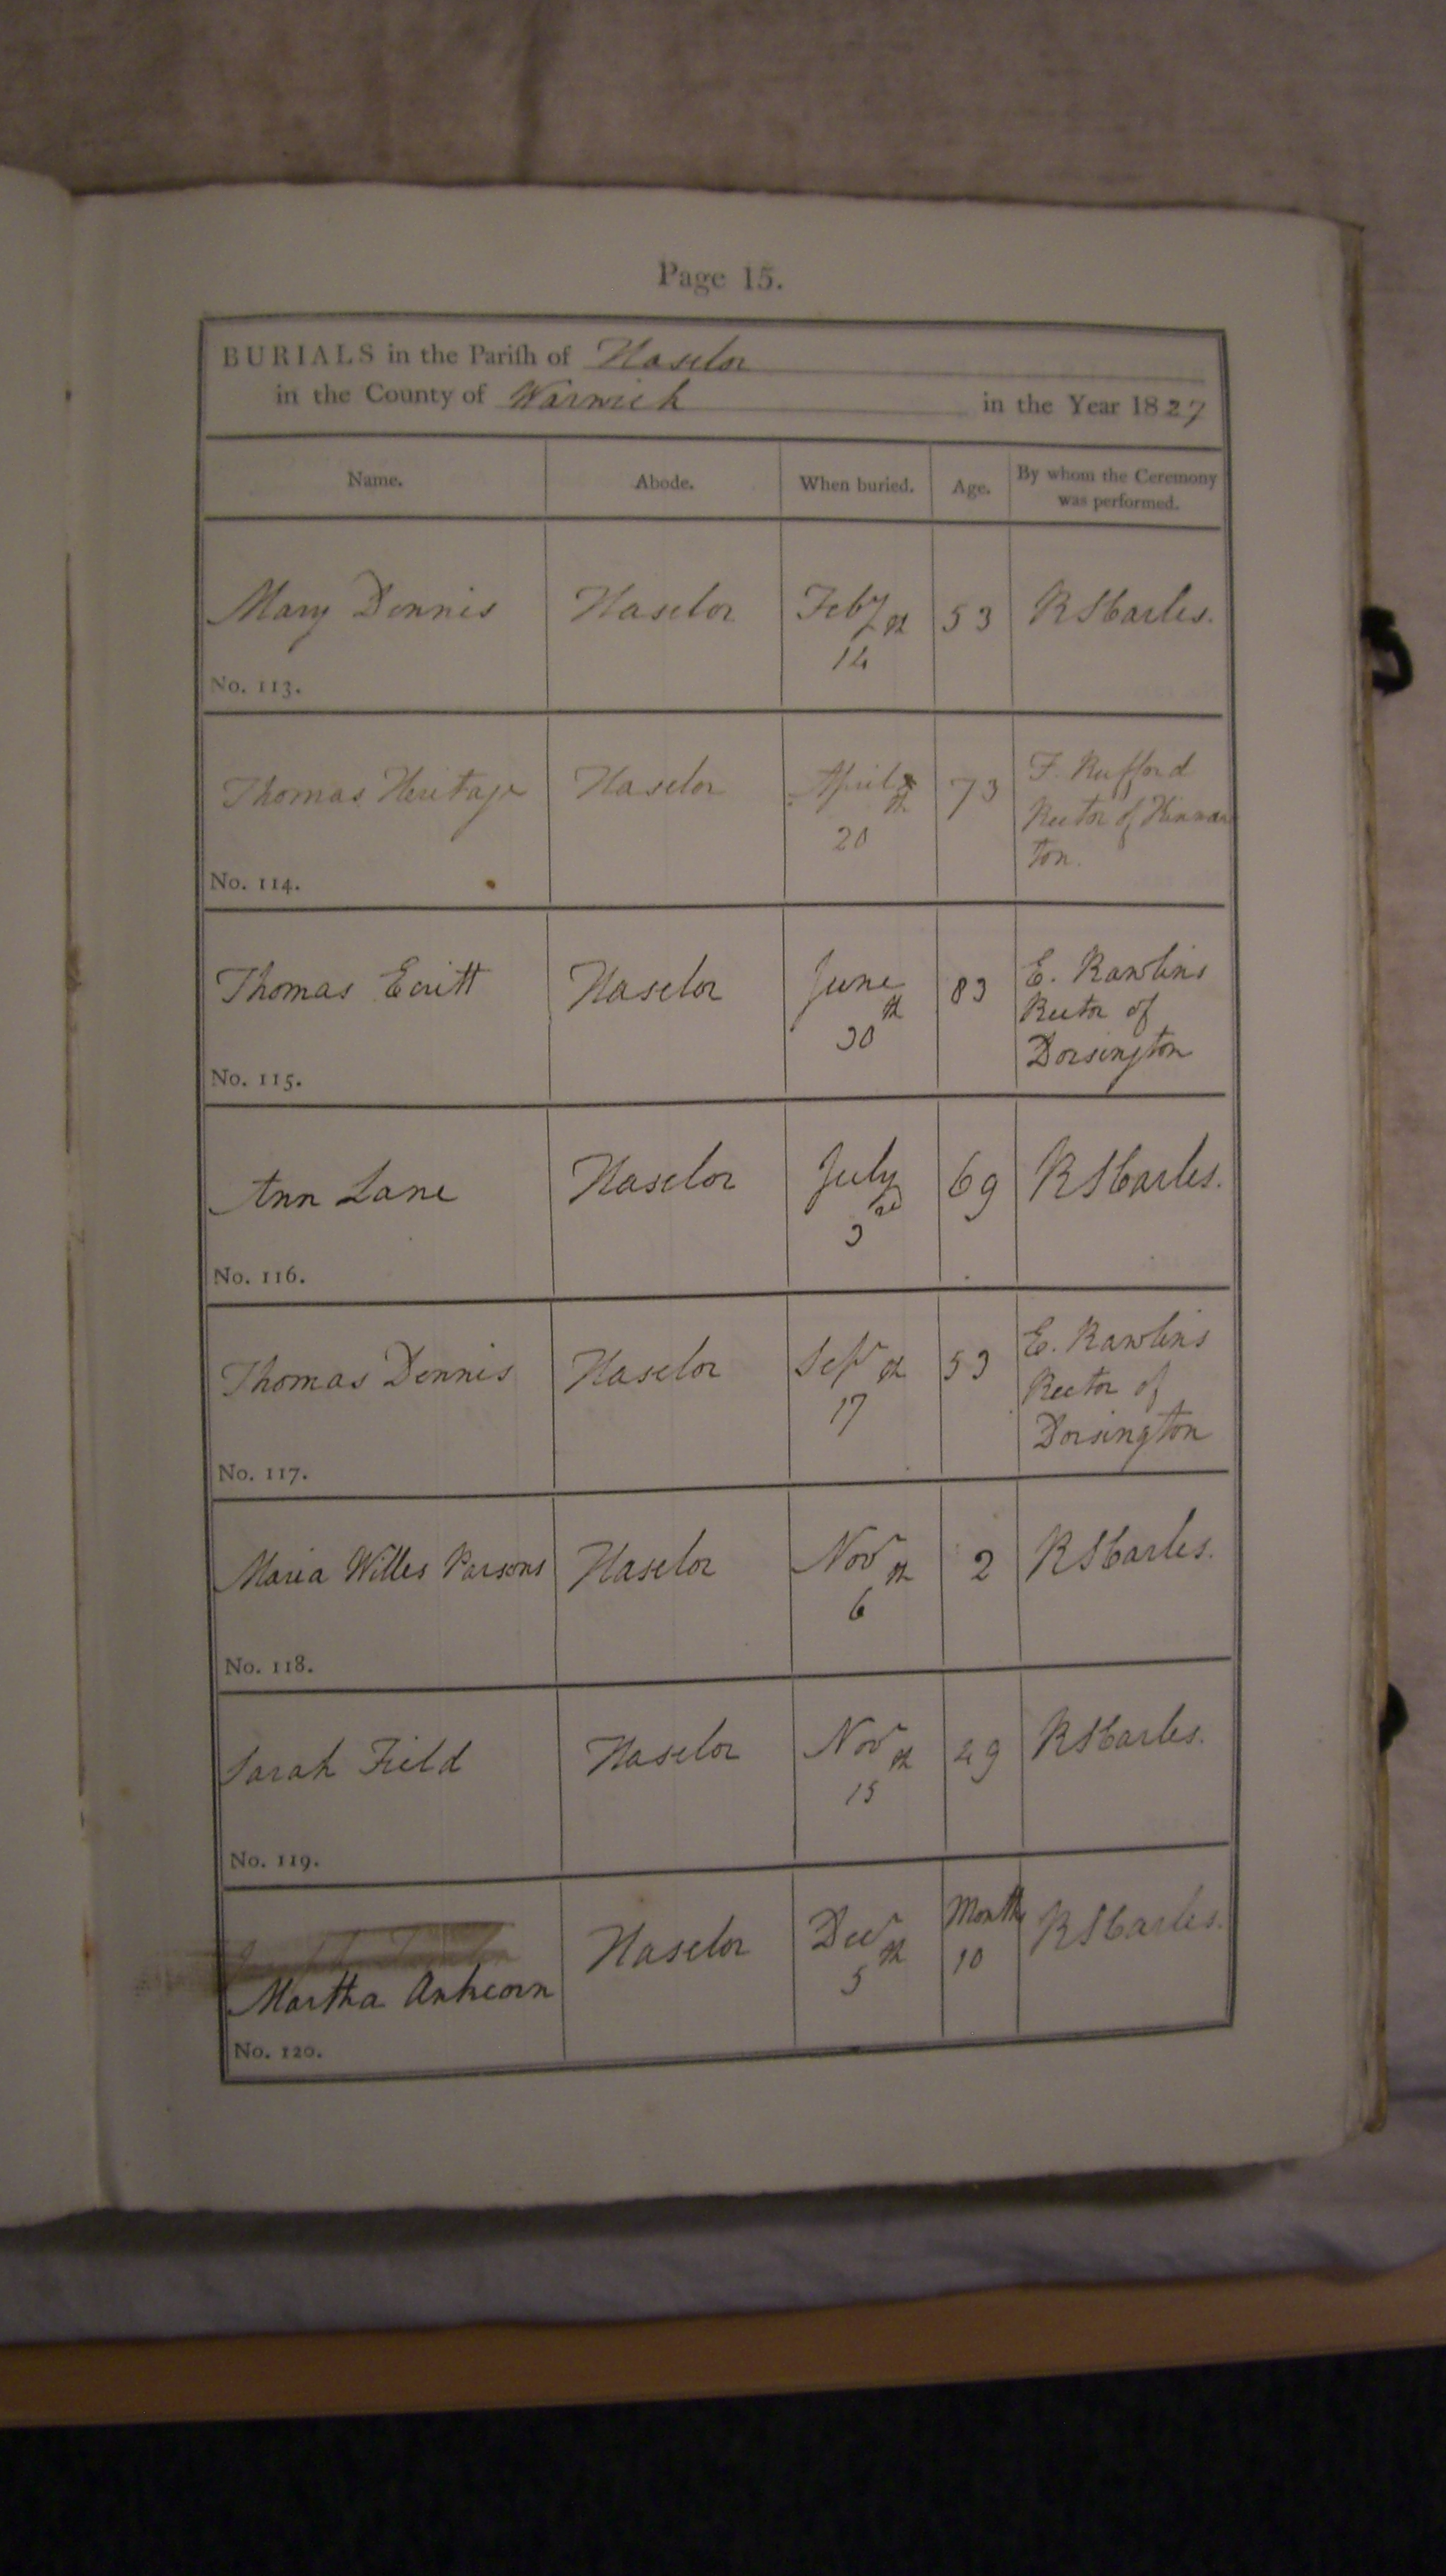 Page 15.
BURIALS in the Pariſh of Haselor
in the County of Warwick in the Year 1827
Name. Abode. When buried. Age. By whom the Ceremony
was performed.
Mary Dennis Haselor Feby th 53 R S Carles.
14
No. 113.
Thomas Heritage Haselor April th 73 F. Rufford
20 Rector of Kinwar
ton.
No. 114.
Thomas Haselor June th 83 E. Rawlins
30 Rector of
Dorsington
No. 115.
Ann Lane Haselor July 69 R S Carles.
3rd
No. 116.
Thomas Dennis Haselor Sepr th 53 E. Rawlins
17 Rector of
Dorsington
No. 117.
Maria Willes Parsons Haselor Novr th 2 R S Carles.
6
No. 118.
Sarah Field Haselor Novr th 49 R S Carles.
15
No. 119.
Haselor Decr th Month R S Carles.
Martha 5 10
No. 120.